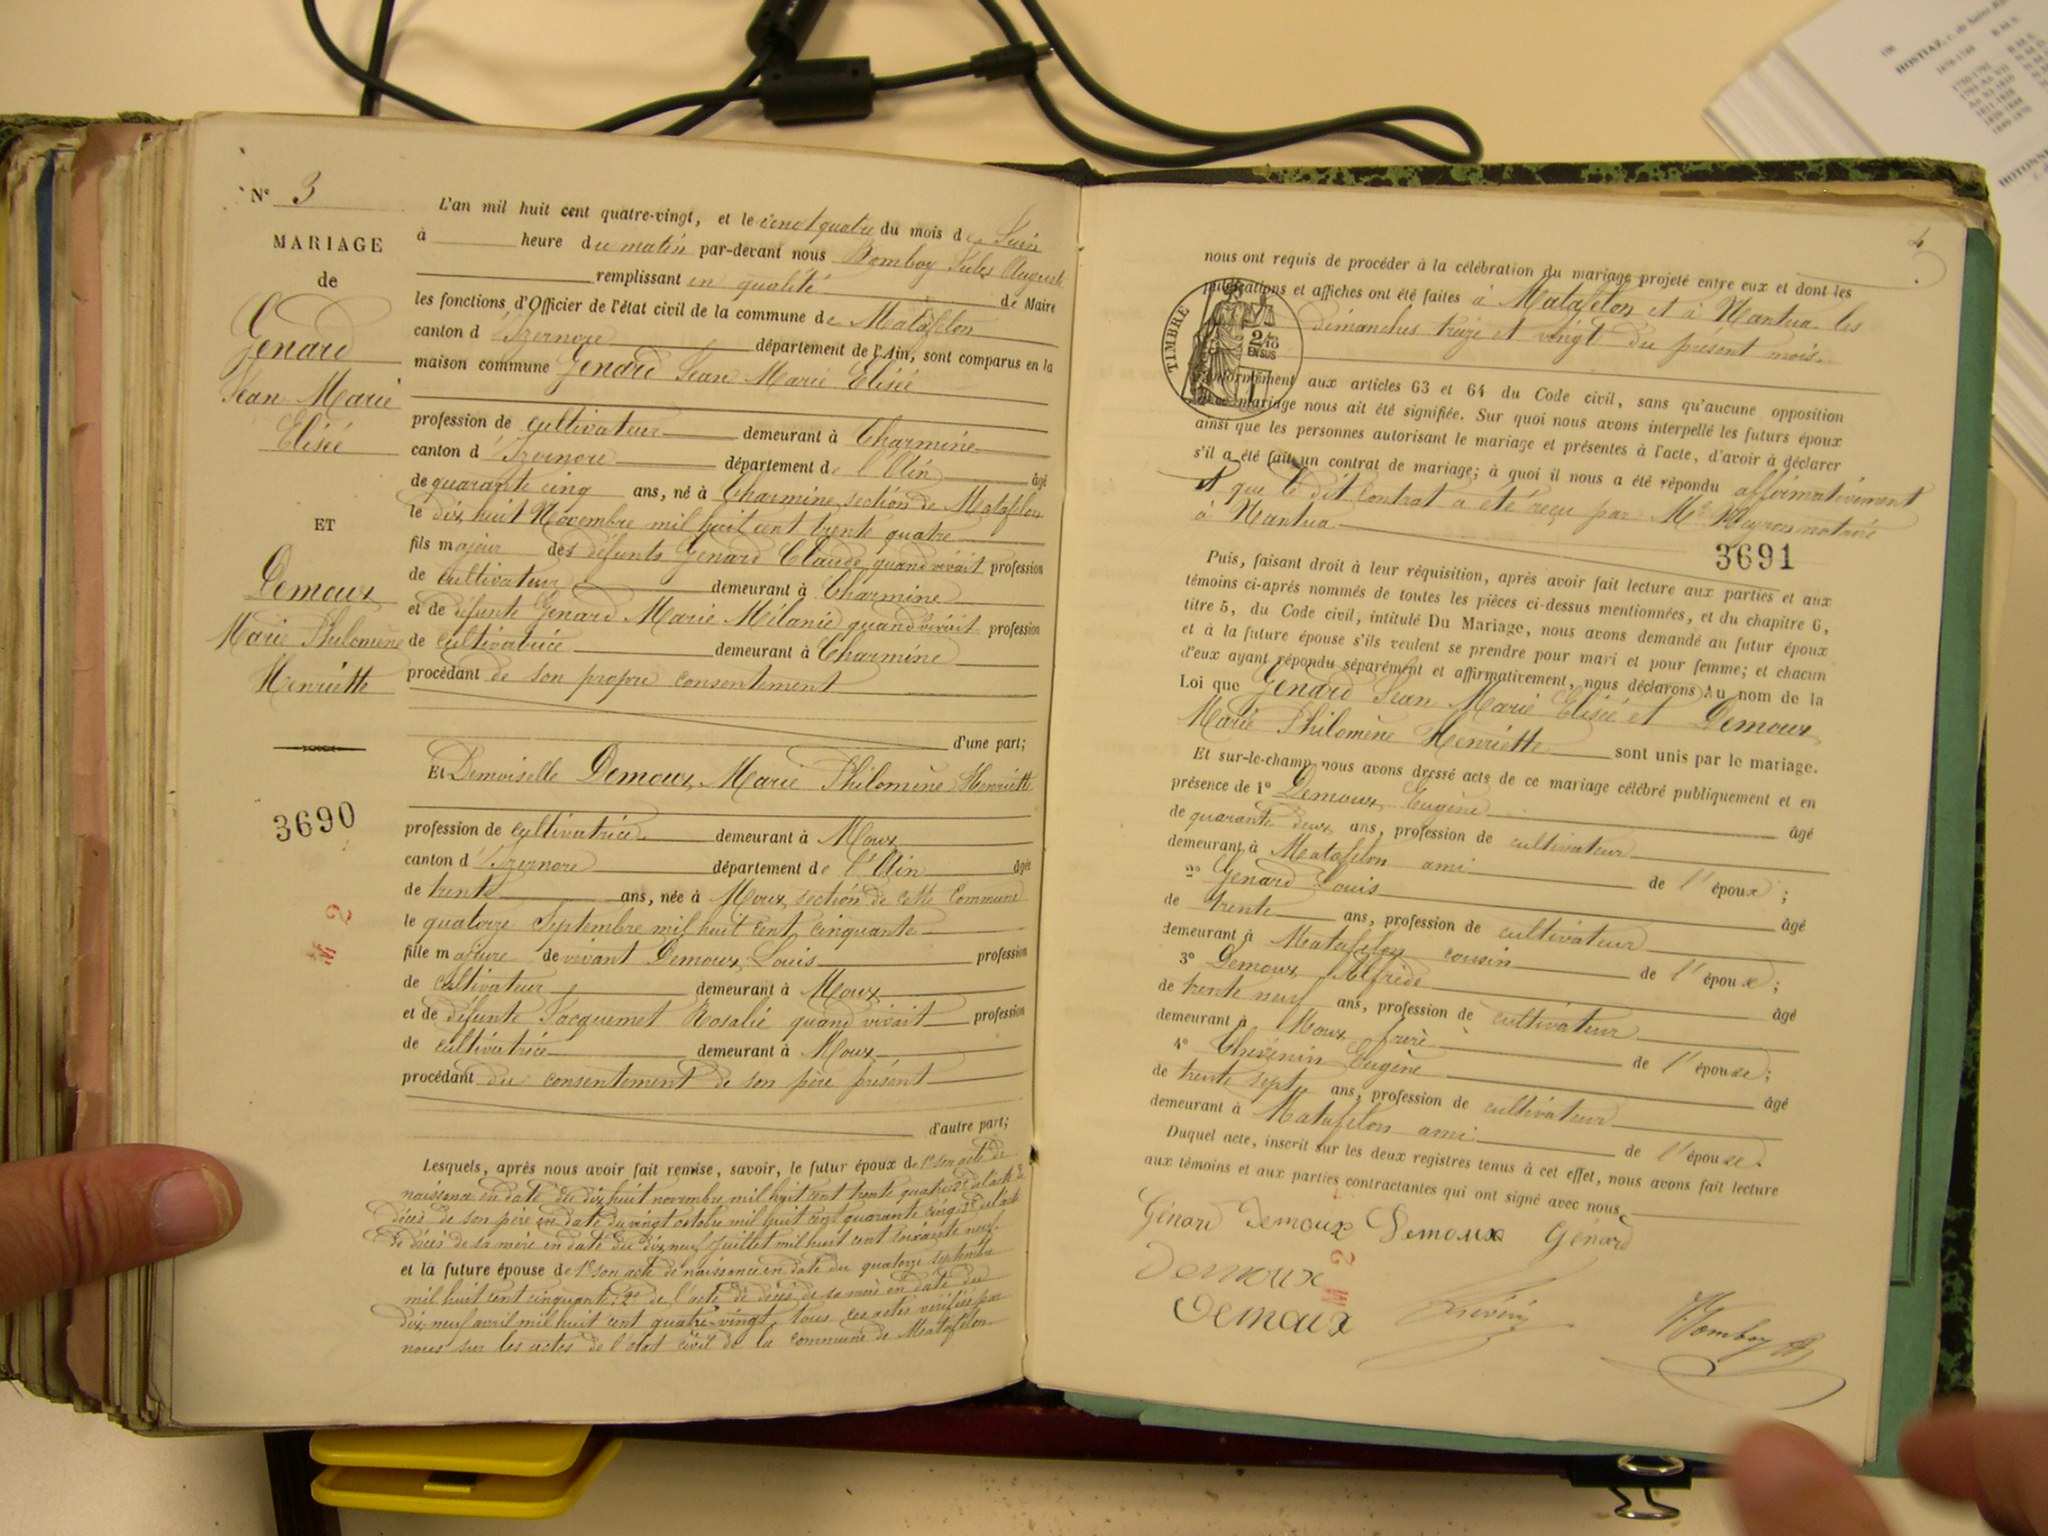 N° 3
MARIAGE
de
Genard
Jean Marie
Elisée
ET
Demoux
Marie Philomène
Henriette
3690
M 2
L'an mil huit cent quatre-vingt, et le vingt quatre du mois de Juin
à heure du matin par-devant nous Bomboy Jules Auguste
remplissant en qualité de Maire
les fonctions d'Officier de l'état civil de la commune de Matafelon
canton d'Izernore département de l'Ain, sont comparus en la
maison commune Genard Jean Marie Elisée
profession de cultivateur demeurant à Charmine
canton d'Izernore département de l'Ain âgé
de quarante cinq ans, né à Charmine section de Matafelon
le dix huit Novembre mil huit cent trente quatre
fils majeur des défunts Genard Claude quand vivait profession
de cultivateur demeurant à Charmine
et de défunte Genard Marie Mélanie quand vivait profession
de cultivatrice demeurant à Charmine
procédant de son propre consentement
d'une part;
Et Demoiselle Demoux Marie Philomène Henriette
profession de cultivatrice demeurant à Moux
canton d'Izernore département de l'Ain âgée
de trente ans, née à Moux section de cette Commune
le quatorze Septembre mil huit cent cinquante
fille majeure de vivant Demoux Louis profession
de cultivateur demeurant à Moux
et de défunte Jacquemet Rosalie quand vivait profession
de cultivatrice demeurant à Moux
procédant du consentement de son père présent
d'autre part;
Lesquels, après nous avoir fait remise, savoir, le futur époux de 1° son acte de
naissance en date du dix huit novembre mil huit cent trente quatre 2° de l'acte de
décès de son père en date du vingt octobre mil huit cent quarante cinq 3° de l'acte
de décès de sa mère en date du dix neuf Juillet mil huit cent soixante neuf
et la future épouse de 1° son acte de naissance en date du quatorze septembre
mil huit cent cinquante, 2° de l'acte de décès de sa mère en date du
dix neuf avril mil huit cent quatre-vingt, tous ces actes vérifiés par
nous sur les actes de l'état civil de la commune de Matafelon
4
nous ont requis de procéder à la célébration du mariage projeté entre eux et dont les
publications et affiches ont été faites à Matafelon et à Nantua les
dimanches treize et vingt du présent mois
TIMBRE
2/10
EN SUS
conformément aux articles 63 et 64 du Code civil, sans qu'aucune opposition
mariage nous ait été signifiée. Sur quoi nous avons interpellé les futurs époux
ainsi que les personnes autorisant le mariage et présentes à l'acte, d'avoir à déclarer
s'il a été fait un contrat de mariage; à quoi il nous a été répondu affirmativement
et que le dit Contrat a été reçu par Me notaire
à Nantua
3691
Puis, faisant droit à leur réquisition, après avoir fait lecture aux parties et aux
témoins ci-après nommés de toutes les pièces ci-dessus mentionnées, et du chapitre 6,
titre 5, du Code civil, intitulé Du Mariage, nous avons demandé au futur époux
et à la future épouse s'ils veulent se prendre pour mari et pour femme; et chacun
d'eux ayant répondu séparément et affirmativement, nous déclarons au nom de la
Loi que Genard Jean Marie Elisée et Demoux
Marie Philomène Henriette sont unis par le mariage.
Et sur-le-champ nous avons dressé acte de ce mariage célébré publiquement et en
présence de 1° Demoux Eugène âgé
de quarante deux ans, profession de cultivateur
demeurant à Matafelon ami de l'époux;
2° Genard Louis âgé
de trente ans, profession de cultivateur
demeurant à Matafelon cousin de l'époux;
3° Demoux Alfrède âgé
de trente neuf ans, profession de cultivateur
demeurant à Moux frère de l'épouse;
4° Thévenin Eugène âgé
de trente sept ans, profession de cultivateur
demeurant à Matafelon ami de l'épouse.
Duquel acte, inscrit sur les deux registres tenus à cet effet, nous avons fait lecture
aux témoins et aux parties contractantes qui ont signé avec nous
Génard Demoux Demoux Génard
Demoux
M 2
Demoux Bomboy
HOSTIAZ